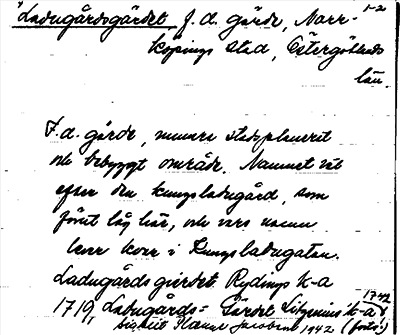 Ladugårdsgärdet f.d. gärde, Norr-
köpings stad, Östergötlands
län.
1-2
F.d. gärde, numera stadsplanerat
och bebyggt område. Namnet vit
efter den kungsladugård, som
förut låg här, och vars namn
lever kvar i Kungsladugatan.
Ladugårds gierdet Rydings k-a
1719, Ladugårds= Gärdet Lithzenius' k-a
1742
1942 (fotost.)